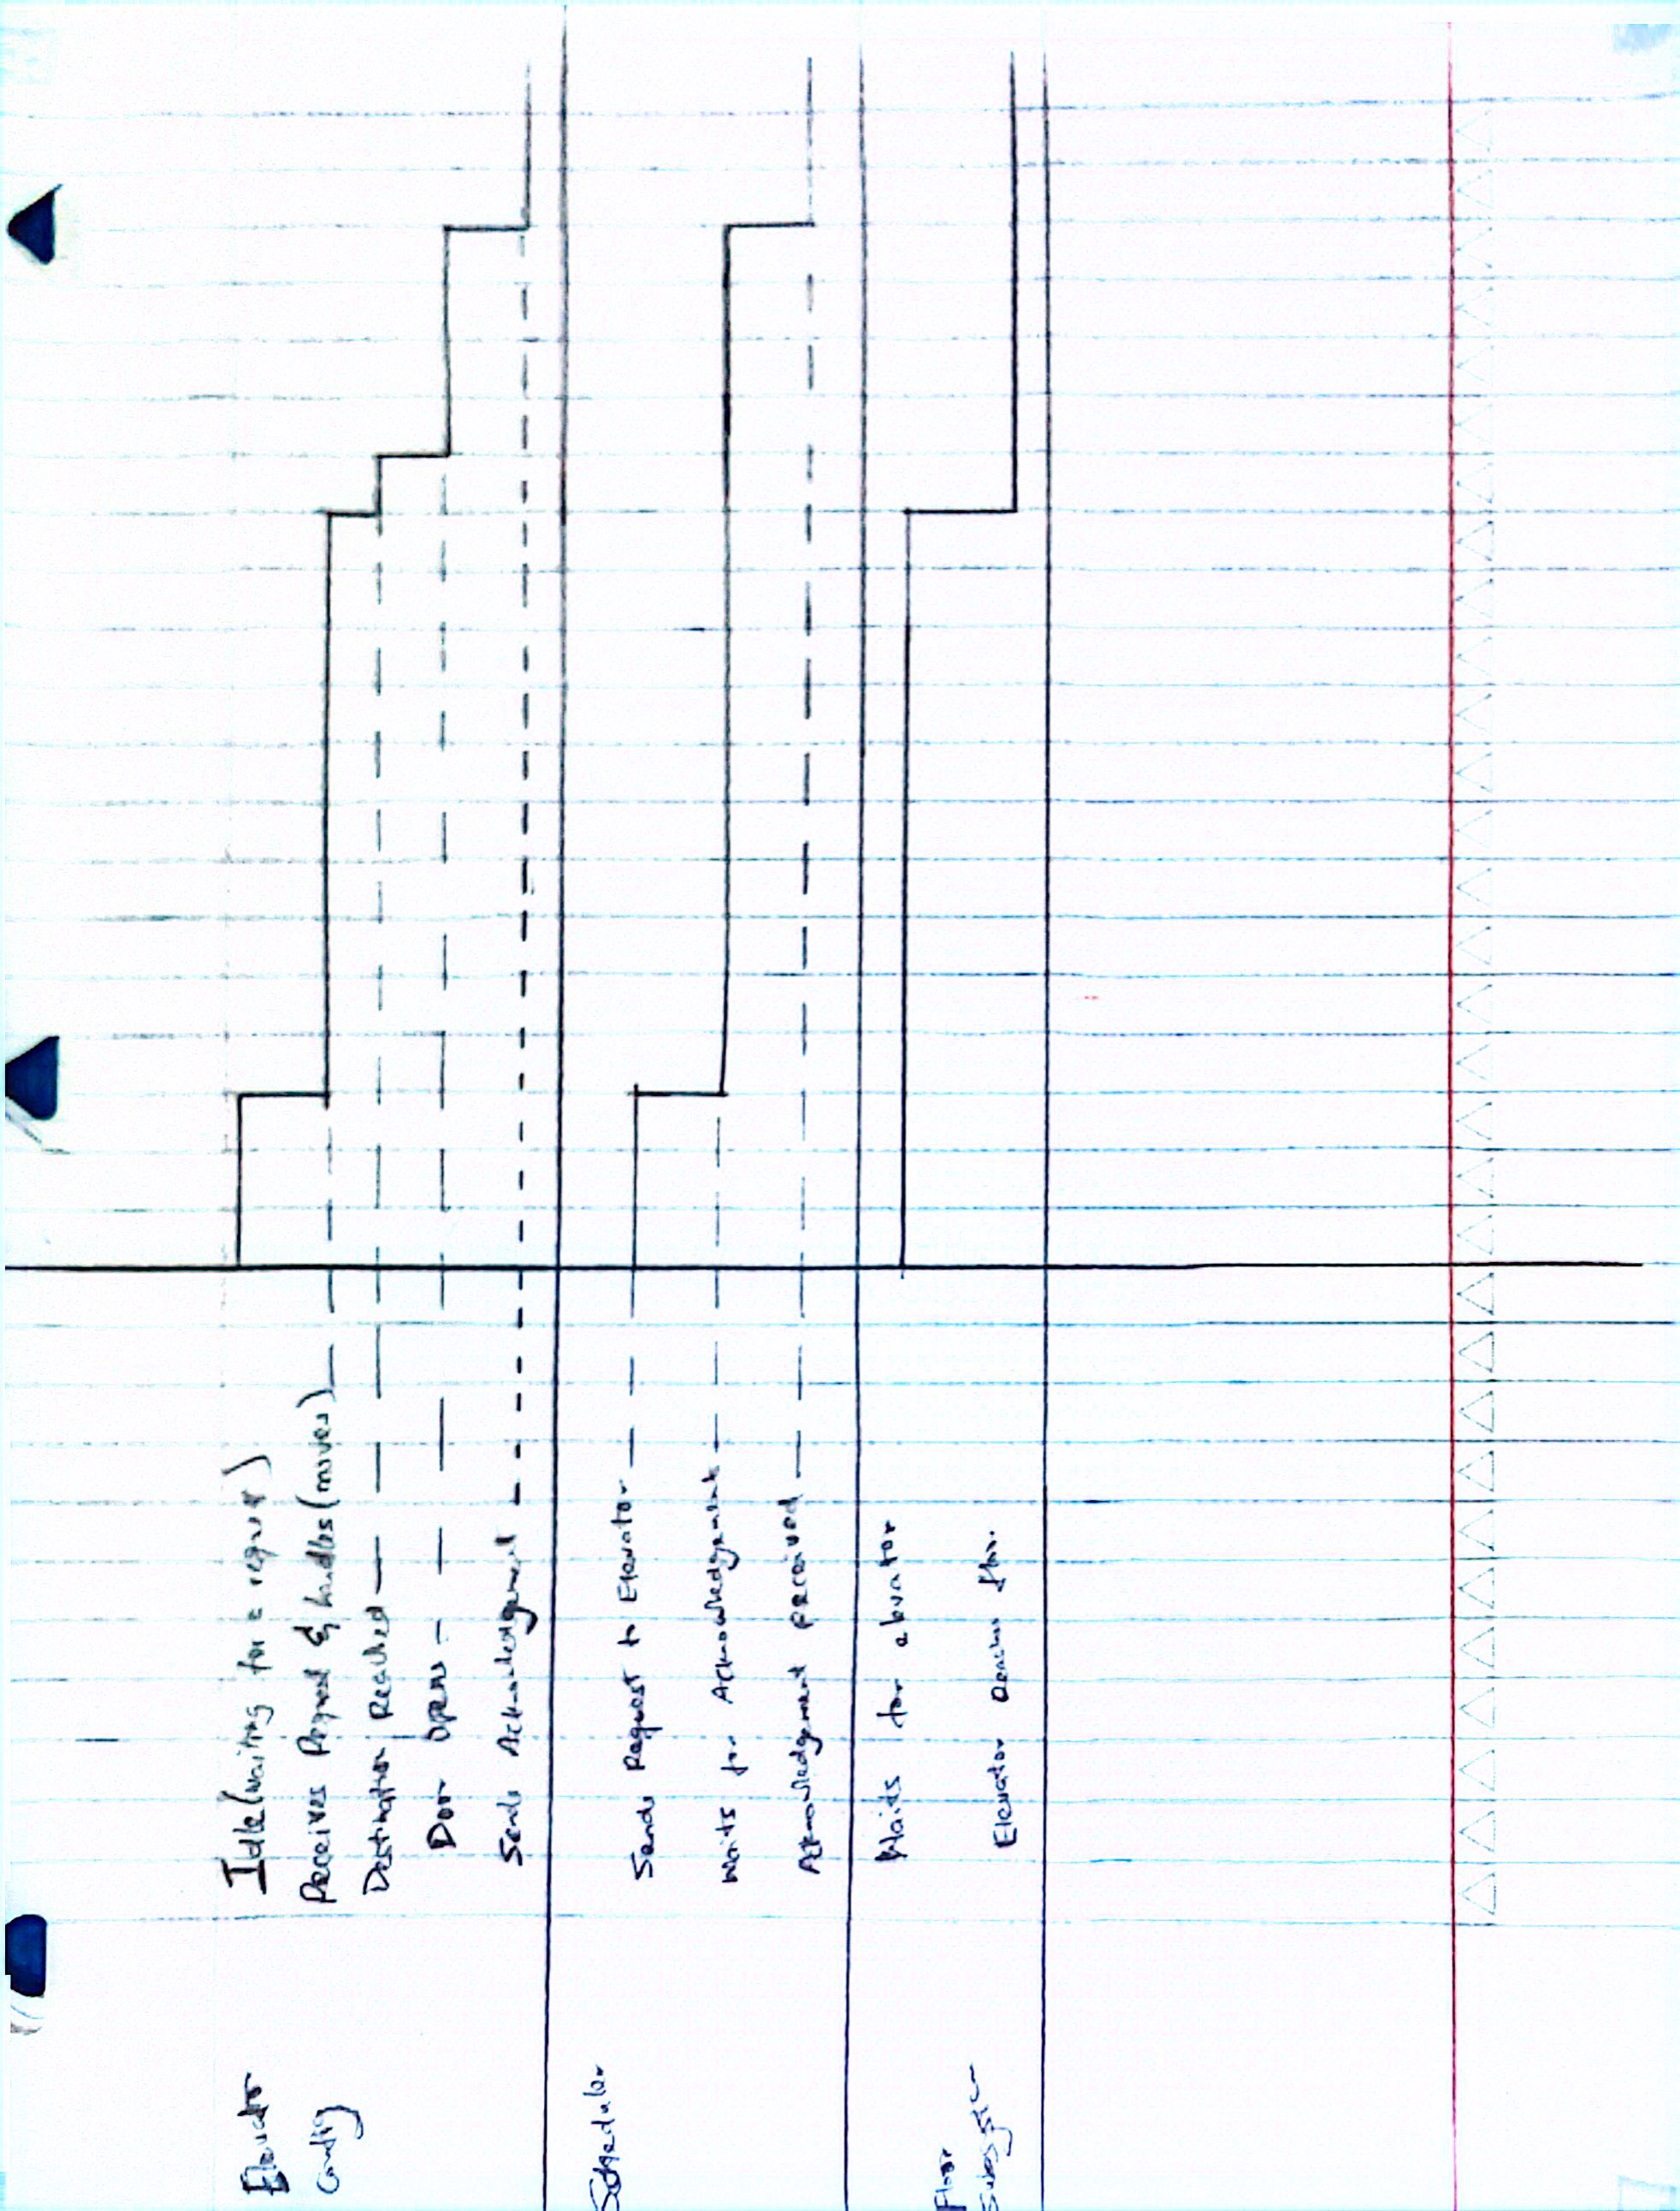 Elevator
Config
Idle (waiting for a request)
Receives Request & handles (moves)
Destination Reached
Door Opens
Sends Acknowledgement
Scheduler
Sends Request to Elevator
Waits for Acknowledgement
Acknowledgement Received
Waits for elevator
Floor
Subsystem
Elevator Reaches floor